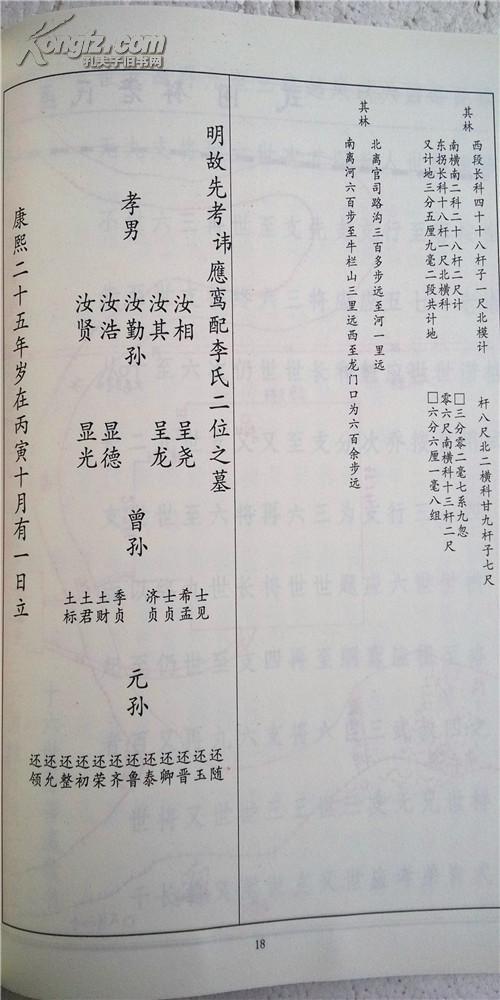 Kongfz.com
孔夫子旧书网
其林
西段长科四十十八杆子一尺北模计
杆八尺北二横科甘九杆子七尺
南横南二科二十八杆二尺计
□三分零二毫七系九忽
东拐长科十八杆一尺北横科
零六尺南横科十三杆二尺
又计地三分五厘九毫二段共计地
□六分六厘一毫八组
其林
北离官司路沟三百多步远至河一里远
南离河六百步至牛栏山三里远西至龙门口为六百余步远
明故先考讳應鸾配李氏二位之墓
孝男
汝相
汝其
汝勤
汝浩
汝贤
孙
呈尧
呈龙
显德
显光
曾孙
士见
希孟
士贞
济贞
季贞
土财
土君
土标
元孙
还随
还玉
还晋
还卿
还泰
还鲁
还齐
还荣
还初
还整
还允
还领
康熙二十五年岁在丙寅十月有一日立
18